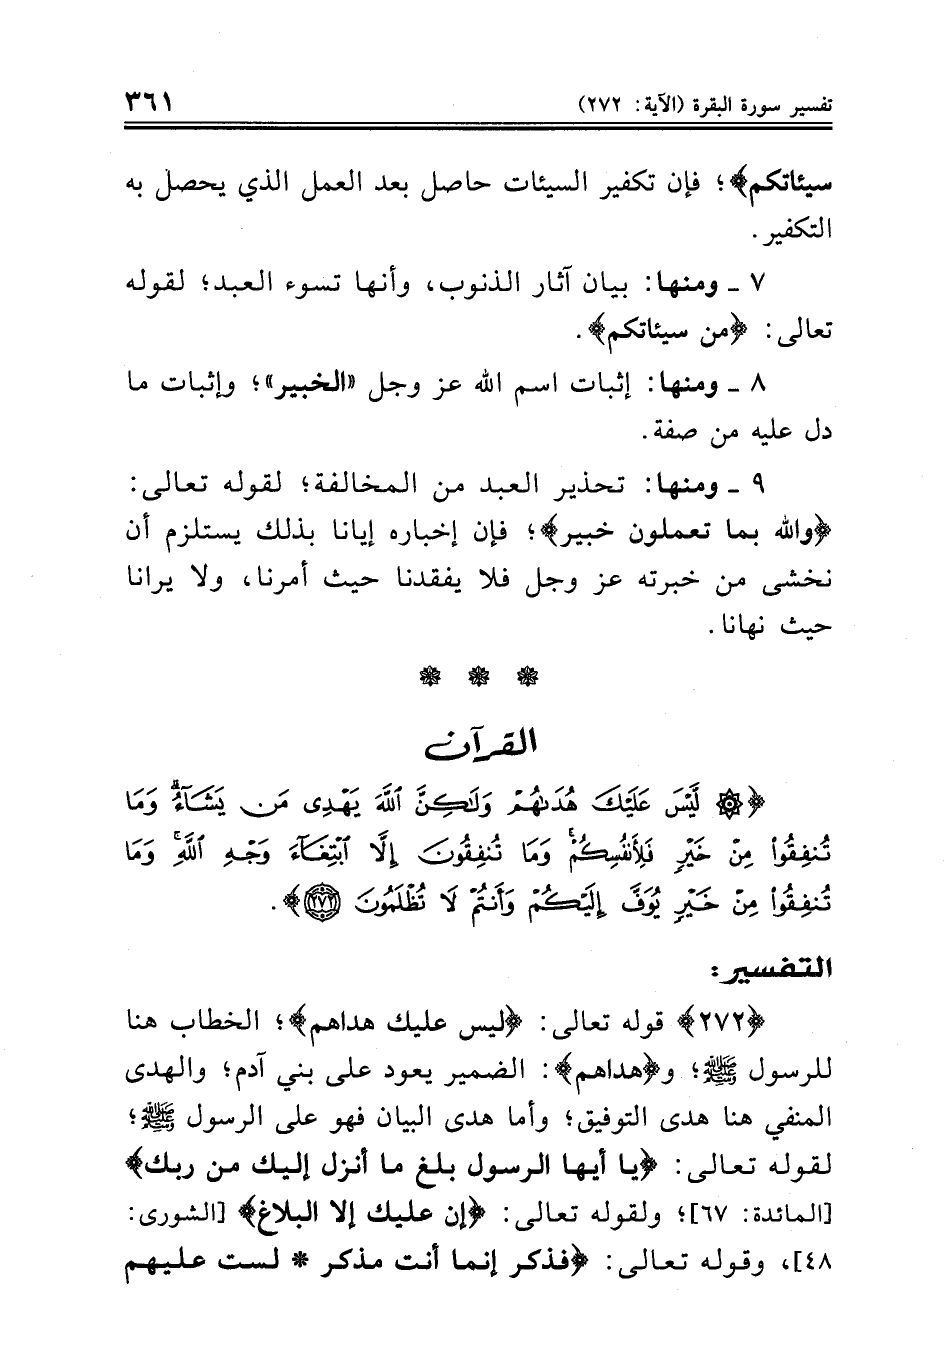 تفسير سورة البقرة (الآية: ٢٧٢) ٣٦١
سيئاتكم﴾؛ فإن تكفير السيئات حاصل بعد العمل الذي يحصل به
التكفير.
٧ ـ ومنها: بيان آثار الذنوب، وأنها تسوء العبد؛ لقوله
تعالى: ﴿من سيئاتكم﴾.
٨ ـ ومنها: إثبات اسم الله عز وجل «الخبير»؛ وإثبات ما
دل عليه من صفة.
٩ ـ ومنها: تحذير العبد من المخالفة؛ لقوله تعالى:
﴿والله بما تعملون خبير﴾؛ فإن إخباره إيانا بذلك يستلزم أن
نخشى من خبرته عز وجل فلا يفقدنا حيث أمرنا، ولا يرانا
حيث نهانا.
* * *
القرآن
﴿۞ لَّيْسَ عَلَيْكَ هُدَىٰهُمْ وَلَـٰكِنَّ ٱللَّهَ يَهْدِى مَن يَشَآءُ ۗ وَمَا
تُنفِقُوا۟ مِنْ خَيْرٍ فَلِأَنفُسِكُمْ ۚ وَمَا تُنفِقُونَ إِلَّا ٱبْتِغَآءَ وَجْهِ ٱللَّهِ ۚ وَمَا
تُنفِقُوا۟ مِنْ خَيْرٍ يُوَفَّ إِلَيْكُمْ وَأَنتُمْ لَا تُظْلَمُونَ ٢٧٢﴾.
التفسير:
﴿٢٧٢﴾ قوله تعالى: ﴿ليس عليك هداهم﴾؛ الخطاب هنا
للرسول ﷺ؛ و﴿هداهم﴾: الضمير يعود على بني آدم؛ والهدى
المنفي هنا هدى التوفيق؛ وأما هدى البيان فهو على الرسول ﷺ؛
لقوله تعالى: ﴿يا أيها الرسول بلغ ما أنزل إليك من ربك﴾
[المائدة: ٦٧]؛ ولقوله تعالى: ﴿إن عليك إلا البلاغ﴾ [الشورى:
٤٨]، وقوله تعالى: ﴿فذكر إنما أنت مذكر * لست عليهم